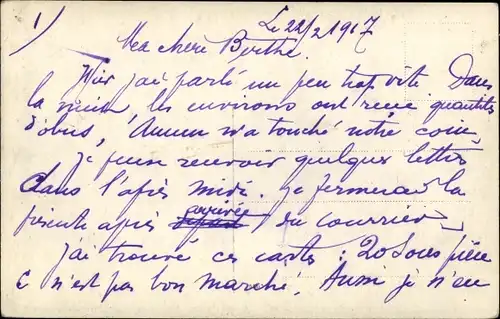 1)
Le 22/2 1917
Ma chère Berthe.
Hier j'ai parlé un peu trop vite. Dans
la nuit, les environs ont reçu quantités
d'obus, Aucun n'a touché notre coin.
Je puis recevoir quelques lettres
dans l'après midi. Je fermerai la
présente après arrivée du courrier.
J'ai trouvé ces cartes : 20 Sous pièce
C n'est pas bon marché. Aussi je n'en